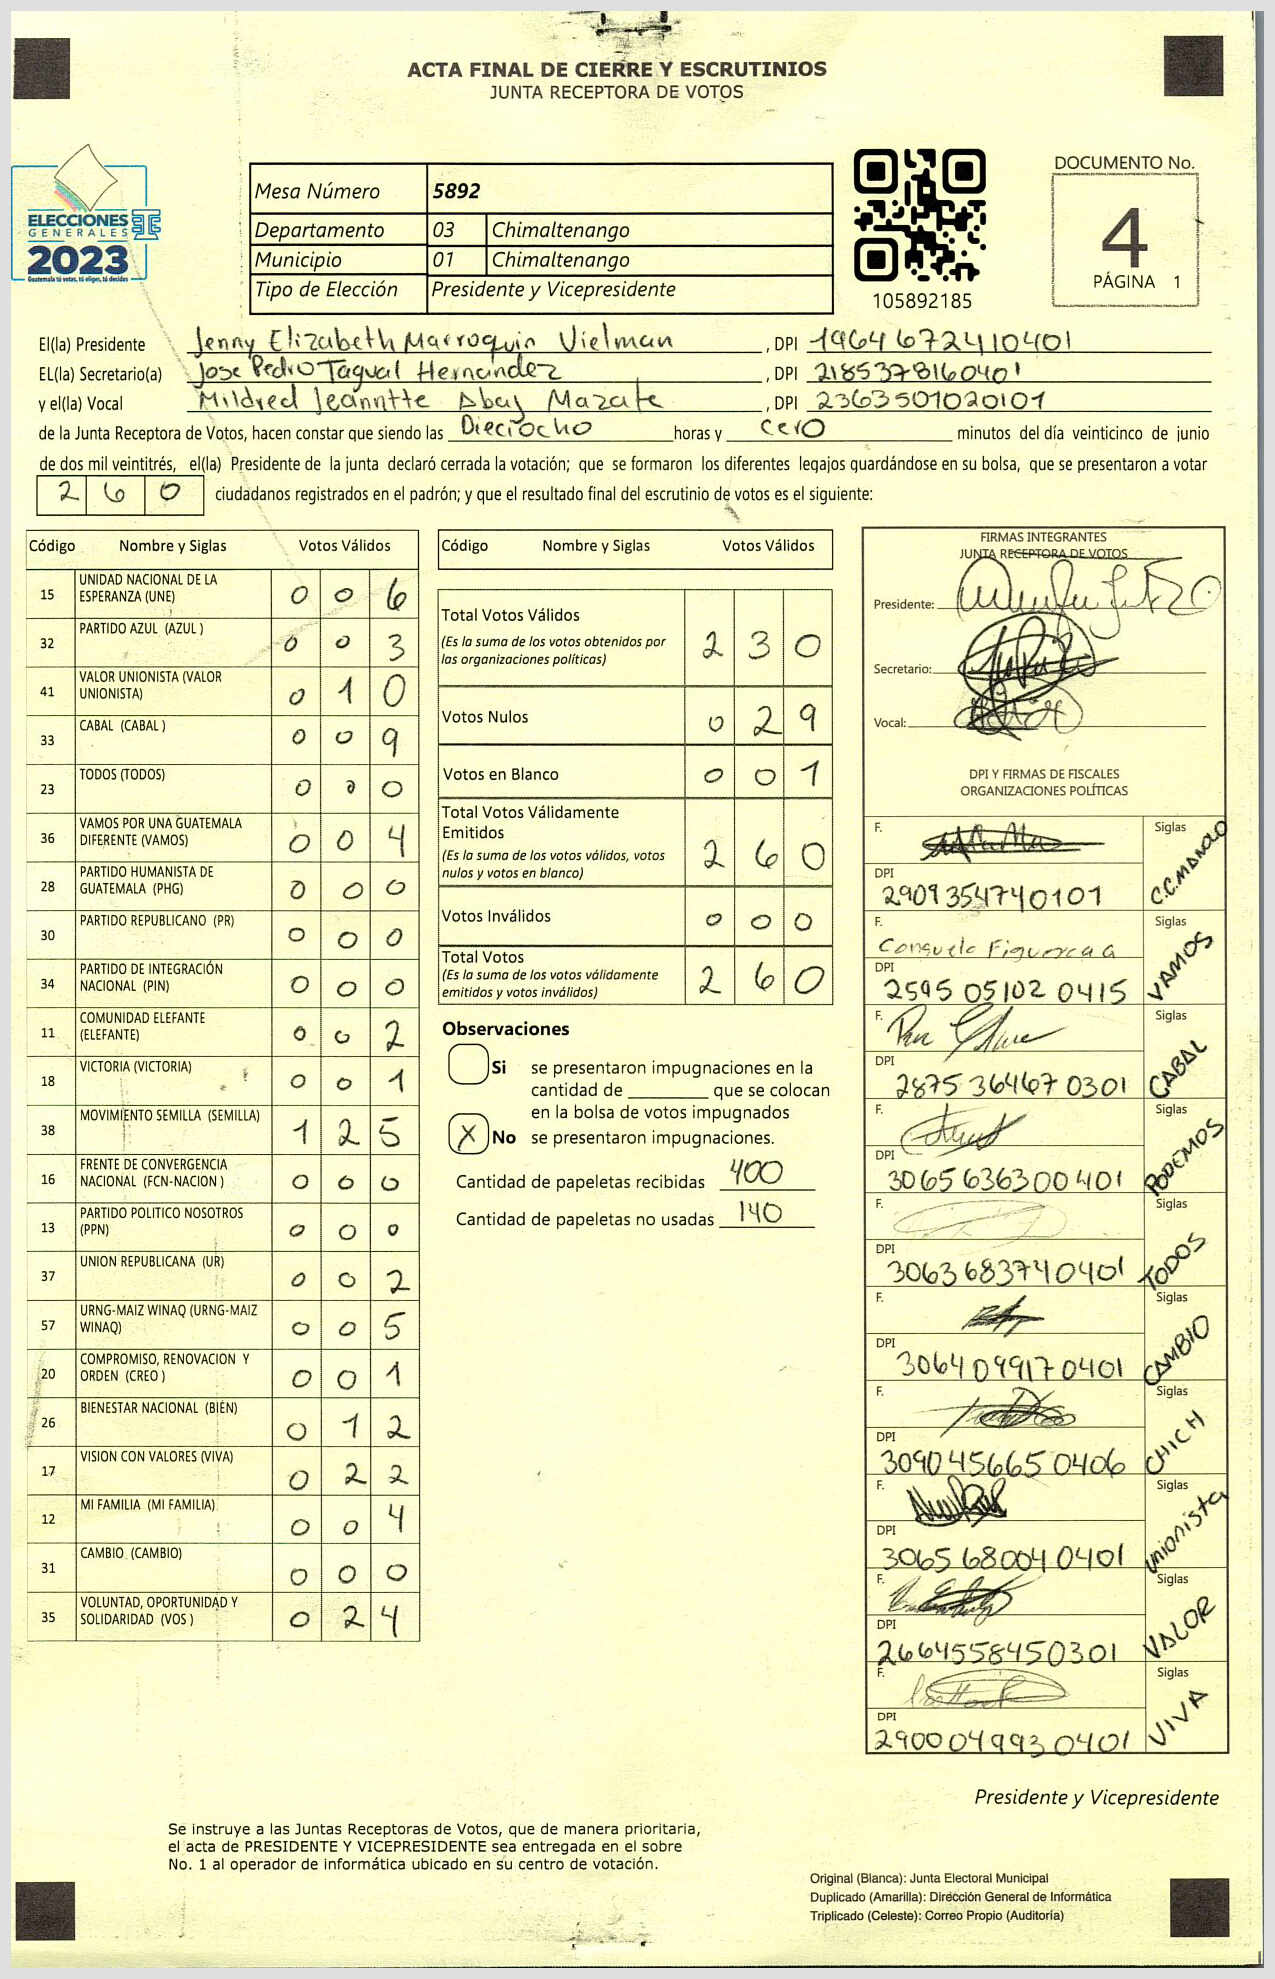 ACTA FINAL DE CIERRE Y ESCRUTINIOS
JUNTA RECEPTORA DE VOTOS
ELECCIONES
GENERALES
2023
Guatemala tú votas, tú eliges, tú decides
Mesa Número 5892
Departamento 03 Chimaltenango
Municipio 01 Chimaltenango
Tipo de Elección Presidente y Vicepresidente
105892185
DOCUMENTO No.
4
PÁGINA 1
El(la) Presidente Jenny Elizabeth Marroquin Vielman, DPI 1964672410401
EL(la) Secretario(a) Jose Pedro Taqual Hernández, DPI 2185378160401
y el(la) Vocal Mildred Jeanntte Abaj Mazate, DPI 2363501020101
de la Junta Receptora de Votos, hacen constar que siendo las Dieciocho horas y cero minutos del día veinticinco de junio
de dos mil veintitrés, el(la) Presidente de la junta declaró cerrada la votación; que se formaron los diferentes legajos guardándose en su bolsa, que se presentaron a votar
260 ciudadanos registrados en el padrón; y que el resultado final del escrutinio de votos es el siguiente:
Código Nombre y Siglas Votos Válidos
15 UNIDAD NACIONAL DE LA ESPERANZA (UNE) 0 0 6
32 PARTIDO AZUL (AZUL ) 0 0 3
41 VALOR UNIONISTA (VALOR UNIONISTA) 0 1 0
33 CABAL (CABAL ) 0 0 9
23 TODOS (TODOS) 0 0 0
36 VAMOS POR UNA GUATEMALA DIFERENTE (VAMOS) 0 0 4
28 PARTIDO HUMANISTA DE GUATEMALA (PHG) 0 0 0
30 PARTIDO REPUBLICANO (PR) 0 0 0
34 PARTIDO DE INTEGRACIÓN NACIONAL (PIN) 0 0 0
11 COMUNIDAD ELEFANTE (ELEFANTE) 0 0 2
18 VICTORIA (VICTORIA) 0 0 1
38 MOVIMIENTO SEMILLA (SEMILLA) 1 2 5
16 FRENTE DE CONVERGENCIA NACIONAL (FCN-NACION ) 0 0 0
13 PARTIDO POLITICO NOSOTROS (PPN) 0 0 0
37 UNION REPUBLICANA (UR) 0 0 2
57 URNG-MAIZ WINAQ (URNG-MAIZ WINAQ) 0 0 5
20 COMPROMISO, RENOVACION Y ORDEN (CREO ) 0 0 1
26 BIENESTAR NACIONAL (BIEN) 0 1 2
17 VISION CON VALORES (VIVA) 0 2 2
12 MI FAMILIA (MI FAMILIA) 0 0 4
31 CAMBIO (CAMBIO) 0 0 0
35 VOLUNTAD, OPORTUNIDAD Y SOLIDARIDAD (VOS ) 0 2 4
Código Nombre y Siglas Votos Válidos
Total Votos Válidos 2 3 0
(Es la suma de los votos obtenidos por
las organizaciones políticas)
Votos Nulos 0 2 9
Votos en Blanco 0 0 1
Total Votos Válidamente
Emitidos 2 6 0
(Es la suma de los votos válidos, votos
nulos y votos en blanco)
Votos Inválidos 0 0 0
Total Votos 2 6 0
(Es la suma de los votos válidamente
emitidos y votos inválidos)
Observaciones
Si se presentaron impugnaciones en la
cantidad de ________ que se colocan
en la bolsa de votos impugnados
X No se presentaron impugnaciones.
Cantidad de papeletas recibidas 400
Cantidad de papeletas no usadas 140
FIRMAS INTEGRANTES
JUNTA RECEPTORA DE VOTOS
Presidente:
Secretario:
Vocal:
DPI Y FIRMAS DE FISCALES
ORGANIZACIONES POLÍTICAS
F. Siglas C.C.MANOLO
DPI
2909354740101
F. Consuelo Figueroa Siglas VAMOS
DPI
2595 05102 0415
F. Siglas CABAL
DPI
2875 36467 0301
F. Siglas PODEMOS
DPI
3065636300401
F. Siglas TODOS
DPI
3063683740401
F. Siglas CAMBIO
DPI
3064099170401
F. Siglas CHICH
DPI
3090456650406
F. Siglas Unionista
DPI
3065680040401
F. Siglas VALOR
DPI
2664558450301
F. Siglas VIVA
DPI
2900049930401
Presidente y Vicepresidente
Se instruye a las Juntas Receptoras de Votos, que de manera prioritaria,
el acta de PRESIDENTE Y VICEPRESIDENTE sea entregada en el sobre
No. 1 al operador de informática ubicado en su centro de votación.
Original (Blanca): Junta Electoral Municipal
Duplicado (Amarilla): Dirección General de Informática
Triplicado (Celeste): Correo Propio (Auditoría)